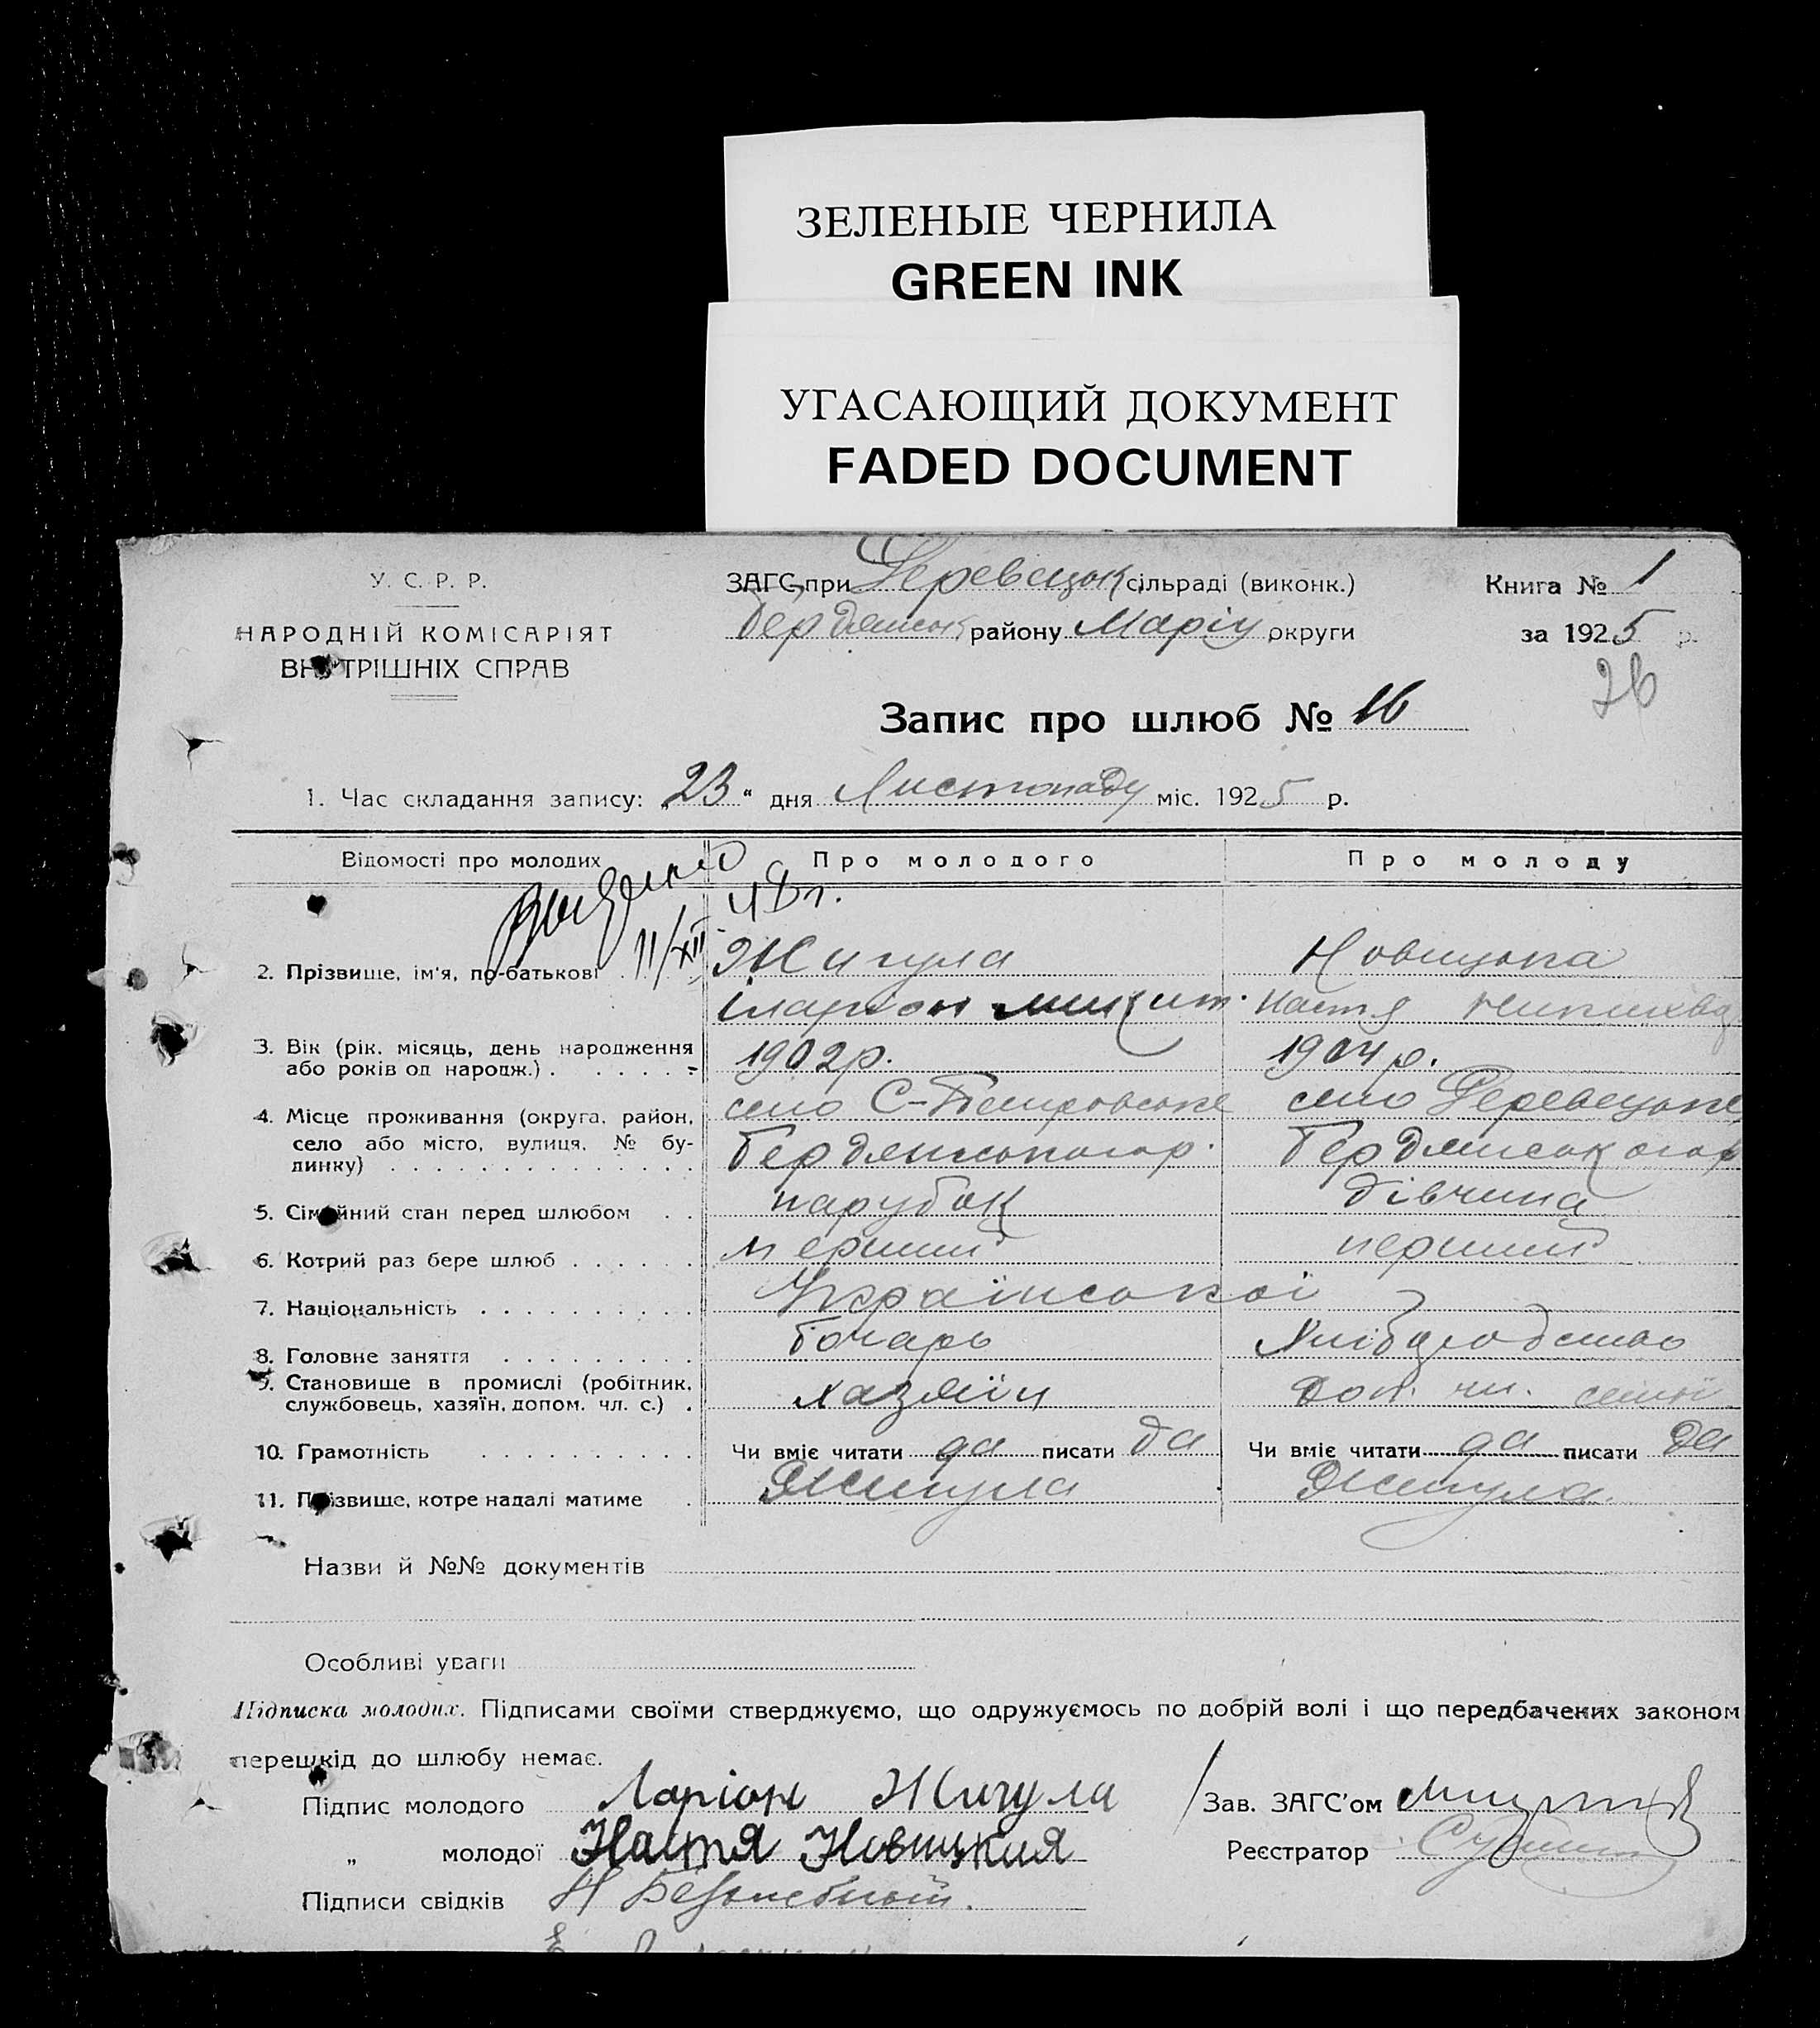 ЗЕЛЕНЫЕ ЧЕРНИЛА
GREEN INK
УГАСАЮЩИЙ ДОКУМЕНТ
FADED DOCUMENT
У. С. Р. Р.
НАРОДНІЙ КОМІСАРІЯТ
ВНУТРІШНІХ СПРАВ
ЗАГС при Деревецьк сільраді (виконк.)
Бердянськ району Маріу округи
Книга № 1
за 1925 р.
26
Запис про шлюб № 16
1. Час складання запису: „23“ дня Листопаду міс. 1925 р.
Відомості про молодих Про молодого Про молоду
11/XII
2. Прізвище, ім'я, по-батькові Жигула Новицька
Іларіон Микит. Настя
3. Вік (рік, місяць, день народження або років од народж.) 1902р. 1904р.
4. Місце проживання (округа, район, село або місто, вулиця, № будинку) село С-Петровське село Деревецьке
Бердянського р. Бердянського р
5. Сімейний стан перед шлюбом парубок дівчина
6. Котрий раз бере шлюб перший перший
7. Національність Української
8. Головне заняття бочарь Хлібородство
9. Становище в промислі (робітник, службовець, хазяїн, допом. чл. с.) хазяїн доп. чл. сімї
10. Грамотність Чи вміє читати да писати да Чи вміє читати да писати да
11. Прізвище, котре надалі матиме Жигула Жигула
Назви й №№ документів
Особливі уваги
Підписка молодих. Підписами своїми стверджуємо, що одружуємось по добрій волі і що передбачених законом
перешкід до шлюбу немає.
Підпис молодого Ларіон Жигула Зав. ЗАГС'ом
„ молодої Настя Новицкия Реєстратор
Підписи свідків